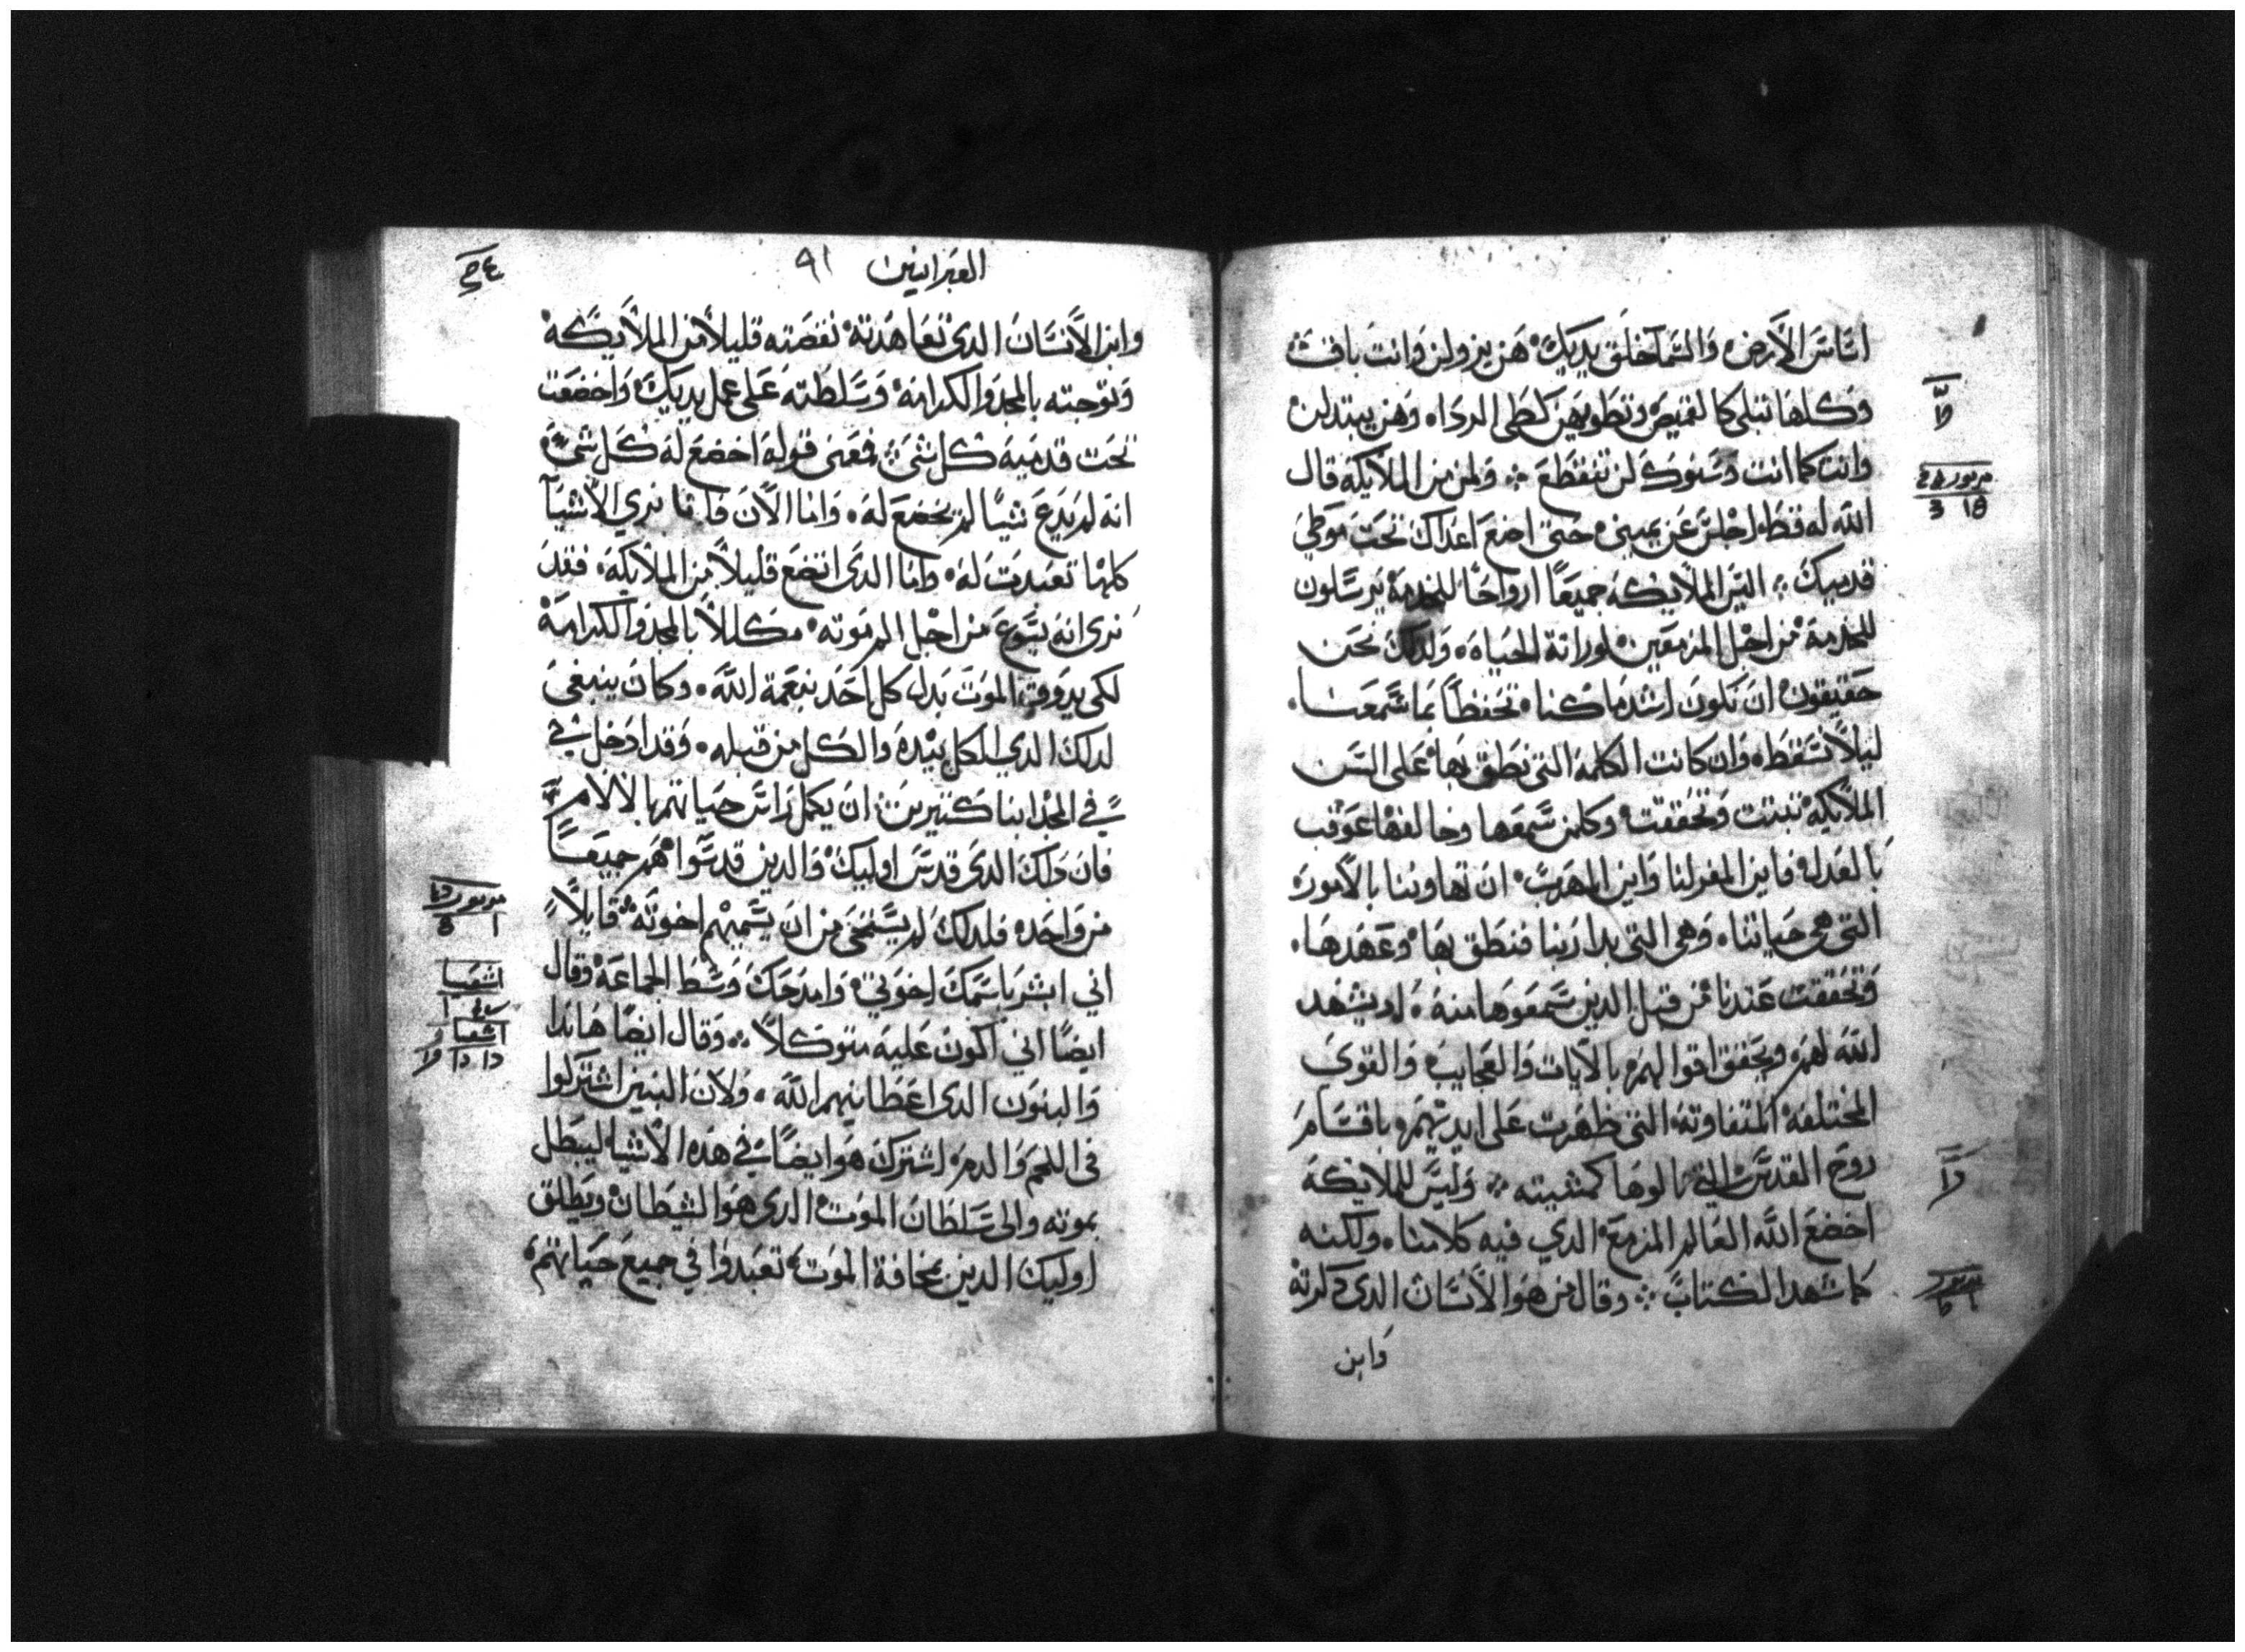 اساس الارض والسما خلق يديك هن يزولن وانت باقٍ
وكلها تبلى كالقميص وتطويهن كطى الردا وهن يبتدلن
وانت كما انت وسنوك لن تنقطع ولمن من الملايكة قال
الله له قط اجلس عن يمينى حتى اضع اعداك تحت موطي
قدميك اليس الملايكه جميعاً ارواحاً للخدمة يرسلون
للخدمة من اجل المزمعين لوراتة الحياه ولدلك نحن
حقيقون ان نكون اشد ما كنا تحفظاً بما سمعنا
ليلا نسقط وان كانت الكلمة التى نطق بها على السن
الملايكه تبتت وتحققت وكل من سمعها وخالفها عوقب
بالعدل فاين المفر لنا واين المهرب ان تهاوننا بالامور
التى هى حياتنا وهى التى بدا ربنا فنطق بها وعهدها
وتحققت عندنا من قبل الدين سمعوها منه اد يشهد
الله لهم ويحقق اقوالهم بالايات والعجايب والقوى
المختلفة المتفاوتة التى ظهرت على ايديهم باقسام
روح القدس التى نالوها كمشيته وليس للملايكة
اخضع الله العالم المزمع الدي فيه كلامنا ولكنه
كما شهد الكتاب وقال من هو الانسان الدى دكرته
وابن
العبرانيين ٩١
وابن الانسان الدى تعاهدته نقصته قليلاً من الملايكة
وتوجته بالمجد والكرامة وسلطته على عمل يديك واخضعت
تحت قدميه كل شى فمعنى قوله اخضع له كل شى
انه لم يدع شياً لم يخضع له واما الان فانا نري الاشيا
كلها تعبدت له واما الدى اتضع قليلاً من الملايكة فقد
نرى انه يسوع من اجل الم موته مكللاً بالمجد والكرامة
لكى يدوق الموت بدل كل احد بنعمة الله وكان ينبغى
لدلك الدي الكل بيده والكل من قبله وقد ادخل في
في المجد ابنا كتيرين ان يكمل راس حياتهم بالالام
فان داك الدى قدس اوليك والدين قدسوا هم جميعاً
من واحد فلدلك لم يستحى من ان يسميهم اخوته قايلاً
اني ابشر باسمك اخوتي وامدحك وسط الجماعة وقال
ايضاً اني اكون عليه متوكلاً وقال ايضاً هاندا
والبنون الدى اعطانيهم الله ولان البنين اشتركوا
فى اللحم والدم اشترك هو ايضاً في هده الاشيا ليبطل
بموته والى سلطان الموت الدى هو الشيطان ويطلق
اوليك الدين بمخافة الموت تعبدوا في جميع حياتهم
مزمور
اشعيا
اشعيا